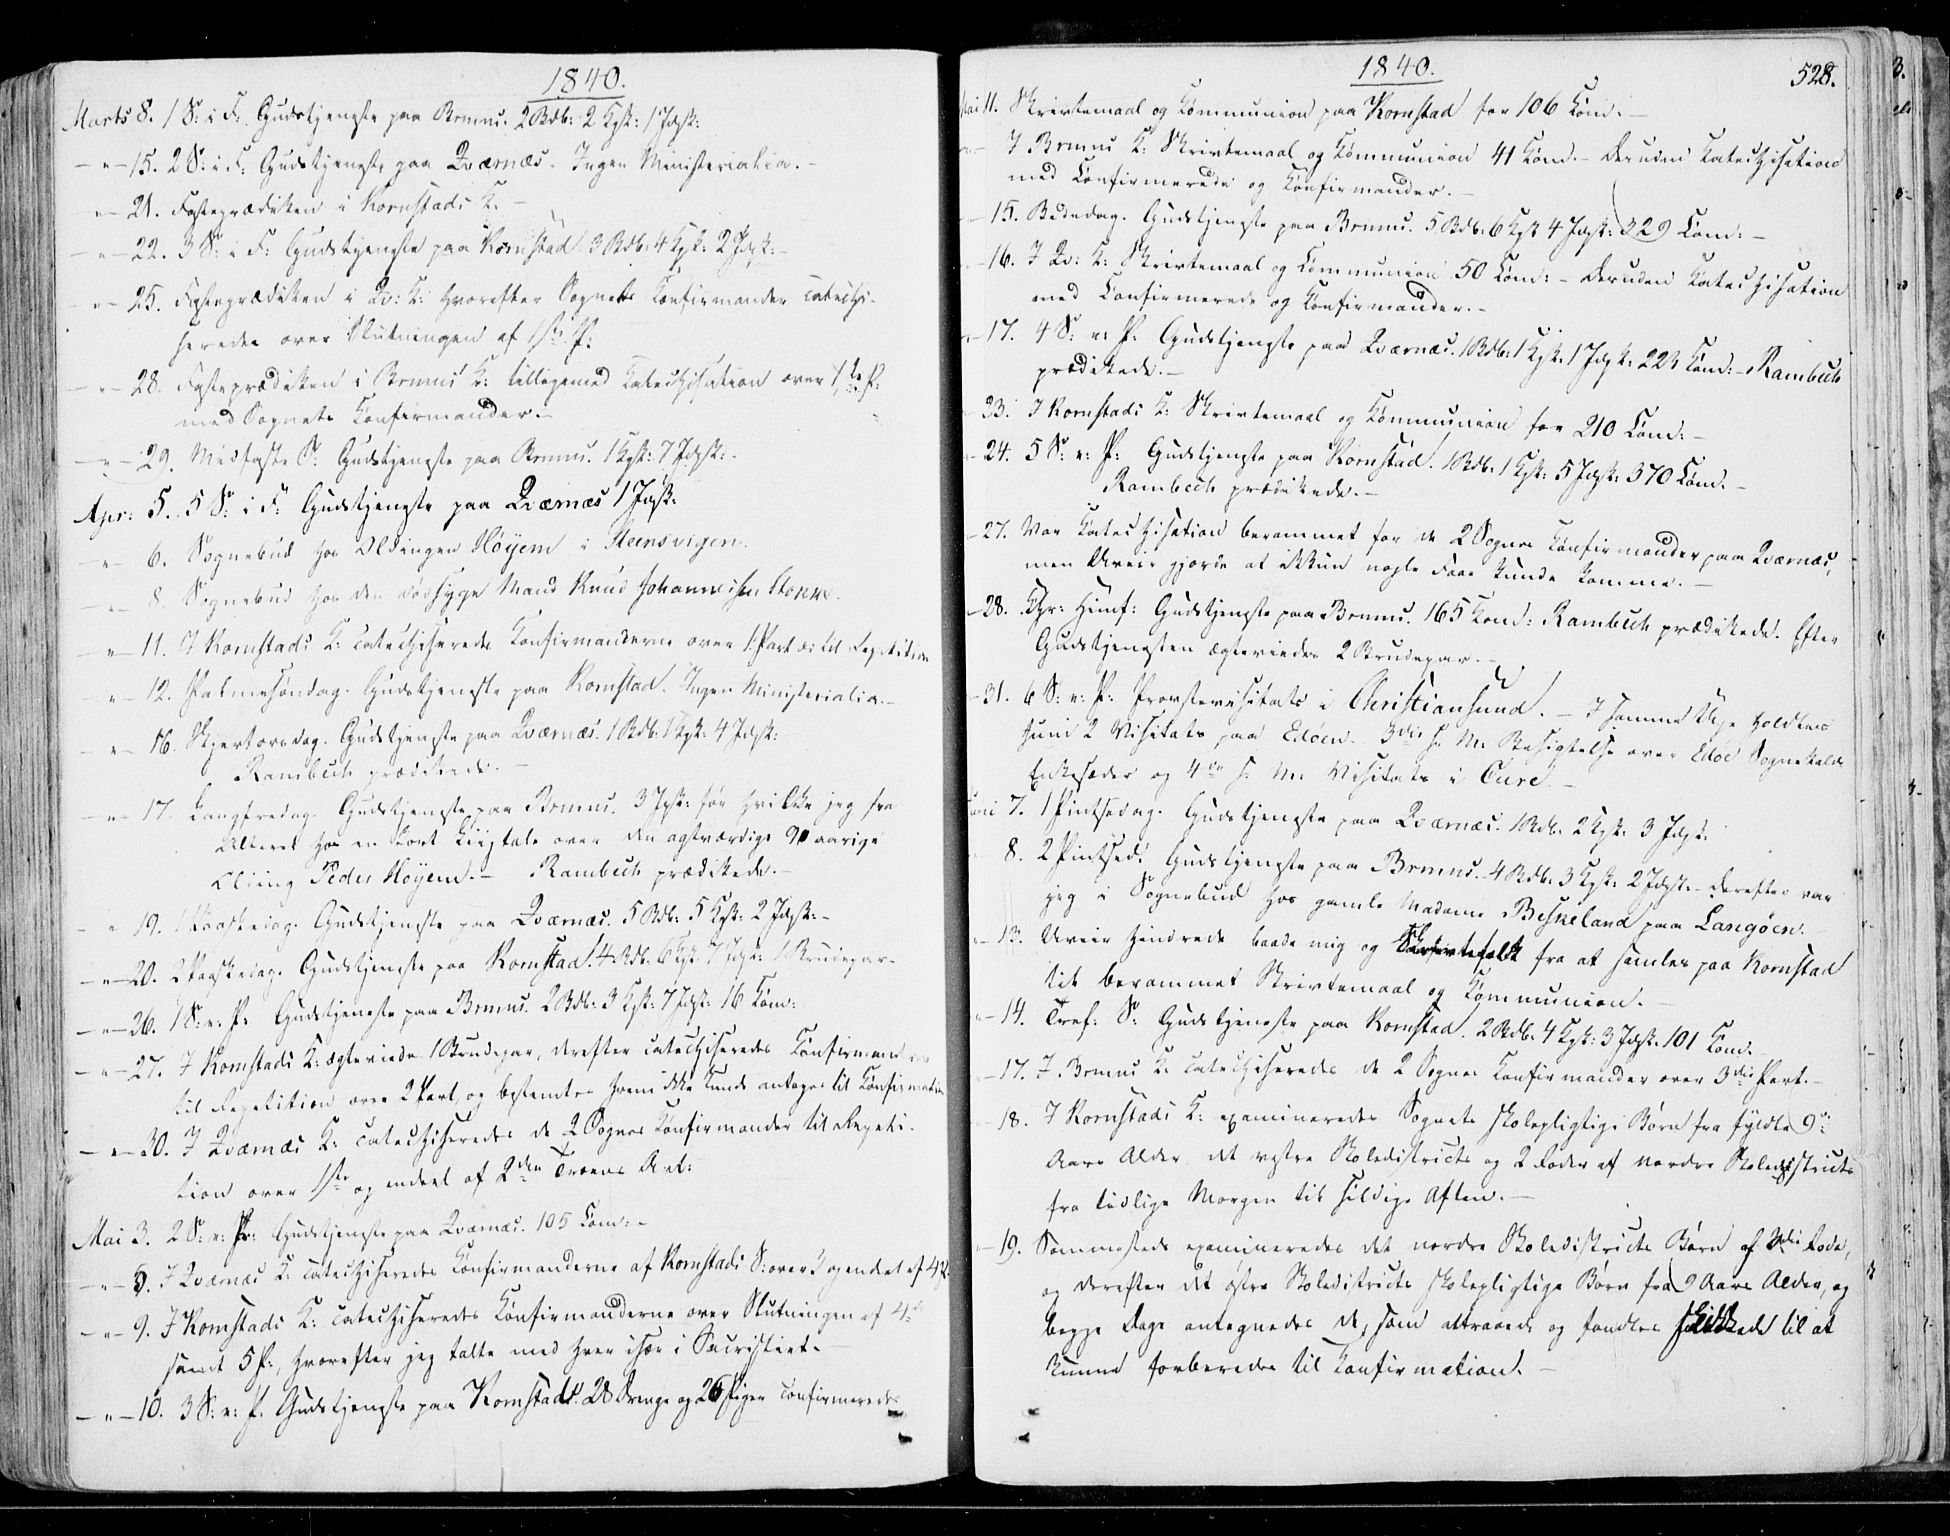 1840.
Marts 8. 1 S: i F: Gudstjeneste paa Bremnes. 2 Rdb: 2 Kgk: 1 Jdgk:
— " — 15. 2 S: i F: Gudstjeneste paa Qværnæs. Ingen Ministerialia. -
" — 21. Fasteprædiken i Kornstads K. —
— " — 22. 3 S: i F: Gudstjeneste paa Kornstad. 3 Rdb: 4 Kgk: 2 Jdgk: -
" — 25. Fasteprædiken i Qv: K: hvorefter Sognets Confirmander catechi-
seredes over Slutningen af 1ste P:
— " — 28. Fasteprædiken i Bremnes K: tilligemed Catechisation over 1ste P:
med Sognets Confirmander. -
— " — 29. Midfaste S: Gudstjeneste paa Bremnes. 1 Kgk: 7 Jdgk: -
Apr: 5. 5 S: i F: Gudstjeneste paa Qværnæs 1 Jdgk:
— " — 6. Sognebud hos Oldingen Høyem i Steensvigen.
" — 8. Sognebud hos den dødssyge Mand Knud Johannesen Stokke.
— " — 11. I Kornstads K: catechiseredes Confirmanderne over 1 Part til Repetition
" — 12. Palmesøndag. Gudstjeneste paa Kornstad. Ingen Ministerialia. -
— " — 16. Skjertorsdag. Gudstjeneste paa Qværnæs. 1 Rdb: 1 Kgk: 4 Jdgk:
Rambech prædikede. —
— " — 17. Langfredag. Gudstjeneste paa Bremnes. 3 Jgk: før hvilke jeg fra
Alteret holdt en kort Liigtale over den agtværdige 90 aarige
Olding Peder Høyem. — Rambech prædikede. -
— " 19. 1 Paaskedag. Gudstjeneste paa Qværnæs. 5 Rdb: 5 Kgk: 2 Jdgk: -
— " — 20. 2 Paaskedag. Gudstjeneste paa Kornstad. 4 Rdb: 6 Kgk: 7 Jdgk: 1 Brudepar -
— " — 26. 1 S: e: P: Gudstjeneste paa Bremnes. 2 Rdb: 3 Kgk: 7 Jdgk: 16 Com:
— " — 27. I Kornstads K: ægteviede 1 Brudepar, derefter catechiseredes Confirmanderne
til Repetition over 2 Part, og bestemtes hvem ikke kunde antages til Confirmation
— " — 30. I Qværnæs K: catechiseredes de 2 Sognes Confirmander til Repeti-
tion over 1ste og endeel af 2den Troens Art:
Mai 3. 2 S: e: P: Gudstjeneste paa Qværnæs. 105 Com: -
— " — I Qværnæs K: catechiseredes Confirmanderne af Kornstads S: over 3 og endeel af 4 P:
— " — 9. I Kornstads K: catechiseredes Confirmanderne over Slutningen af 4de
samt 5 P:, hvorefter jeg talte med hver især i Sacristiet. —
— " — 10. 3 S: e: P. Gudstjeneste paa Kornstad. 28 Drenge og 26 Piger confirmeredes
1840.
528.
Mai 11. Skrivtemaal og Communion paa Kornstad for 106 Com: —
I Bremnes K: Skrivtemaal og Communion 41 Com. - Desuden Catechisation
med Confirmerede og Confirmander. -
— 15. Bededag. Gudstjeneste paa Bremnes. 5 Rdb: 6 Kgk 4 Jdgk: 329 Com: —
— 16. I Qv: K: Skrivtemaal og Communion 50 Com: - Desuden Catechisation
med Confirmerede og Confirmander. -
— 17. 4 S: e: P: Gudstjeneste paa Qværnæs. 1 Rdb: 1 Kgk: 1 Jdgk: 223 Com: - Rambech
prædikede. —
— 23. I Kornstads K: Skrivtemaal og Communion for 210 Com: —
— 24. 5 S: e: P: Gudstjeneste paa Kornstad. 1 Rdb: 1 Kgk: 5 Jdgk: 370 Com. —
Rambech prædikede. —
— 27. Var Catechisation berammet for de 2 Sognes Confirmander paa Qværnæs,
men Uveir gjorde at ikkun nogle Faae kunde komme. —
— 28. Chr: Himf: Gudstjeneste paa Bremnes. 165 Com: Rambech prædikede. Efter
Gudstjenesten ægteviedes 2 Brudepar. -
— 31. 6 S: e: P: Provstevisitats i Christiansund. — I samme Uge holdtes
Juni 2 Visitats paa Edøen. 3die s. M: Besigtelse over Edøe Sognekalds
Enkesæder og 4de s. M: Visitats i Cure. —
Juni 7. 1 Pintsedag. Gudstjeneste paa Qværnæs. 1 Rdb. 2 Kgk: 3 Jdgk:
8. 2 Pintsed. Gudstjeneste paa Bremnes. 4 Rdb: 3 Kgk: 2 Jdgk. - Derefter var
jeg i Sognebud hos gamle Madame Beskeland paa Langøen. -
— 13. Uveir hindrede baade mig og Skrivtefolk fra at samles paa Kornstad
til berammet Skrivtemaal og Communion. —
— 14. Tref: S: Gudstjeneste paa Kornstad. 2 Rdb. 4 Kgk: 3 Jdgk. 101 Com. -
— 17. I Bremnes K: catechiseredes de 2 Sognes Confirmander over 3die Part. -
— 18. I Kornstads K: examineredes Sognets skolepligtige Børn fra fyldte 9
Aars Alder det vestre Skoledistricts og 2 Roder af nordre Skoledistricts
fra tidlige Morgen til sildige Aften. —
— 19. Sammesteds examineredes det nordre Skoledistricts Børn af 3die Rode,
og derefter det østre Skoledistricts skolepligtige Børn fra 9 Aars Alder, og
begge Dage antegnedes de, som attraaede og fandtes skikkede til at
kunne forberedes til Confirmation. —